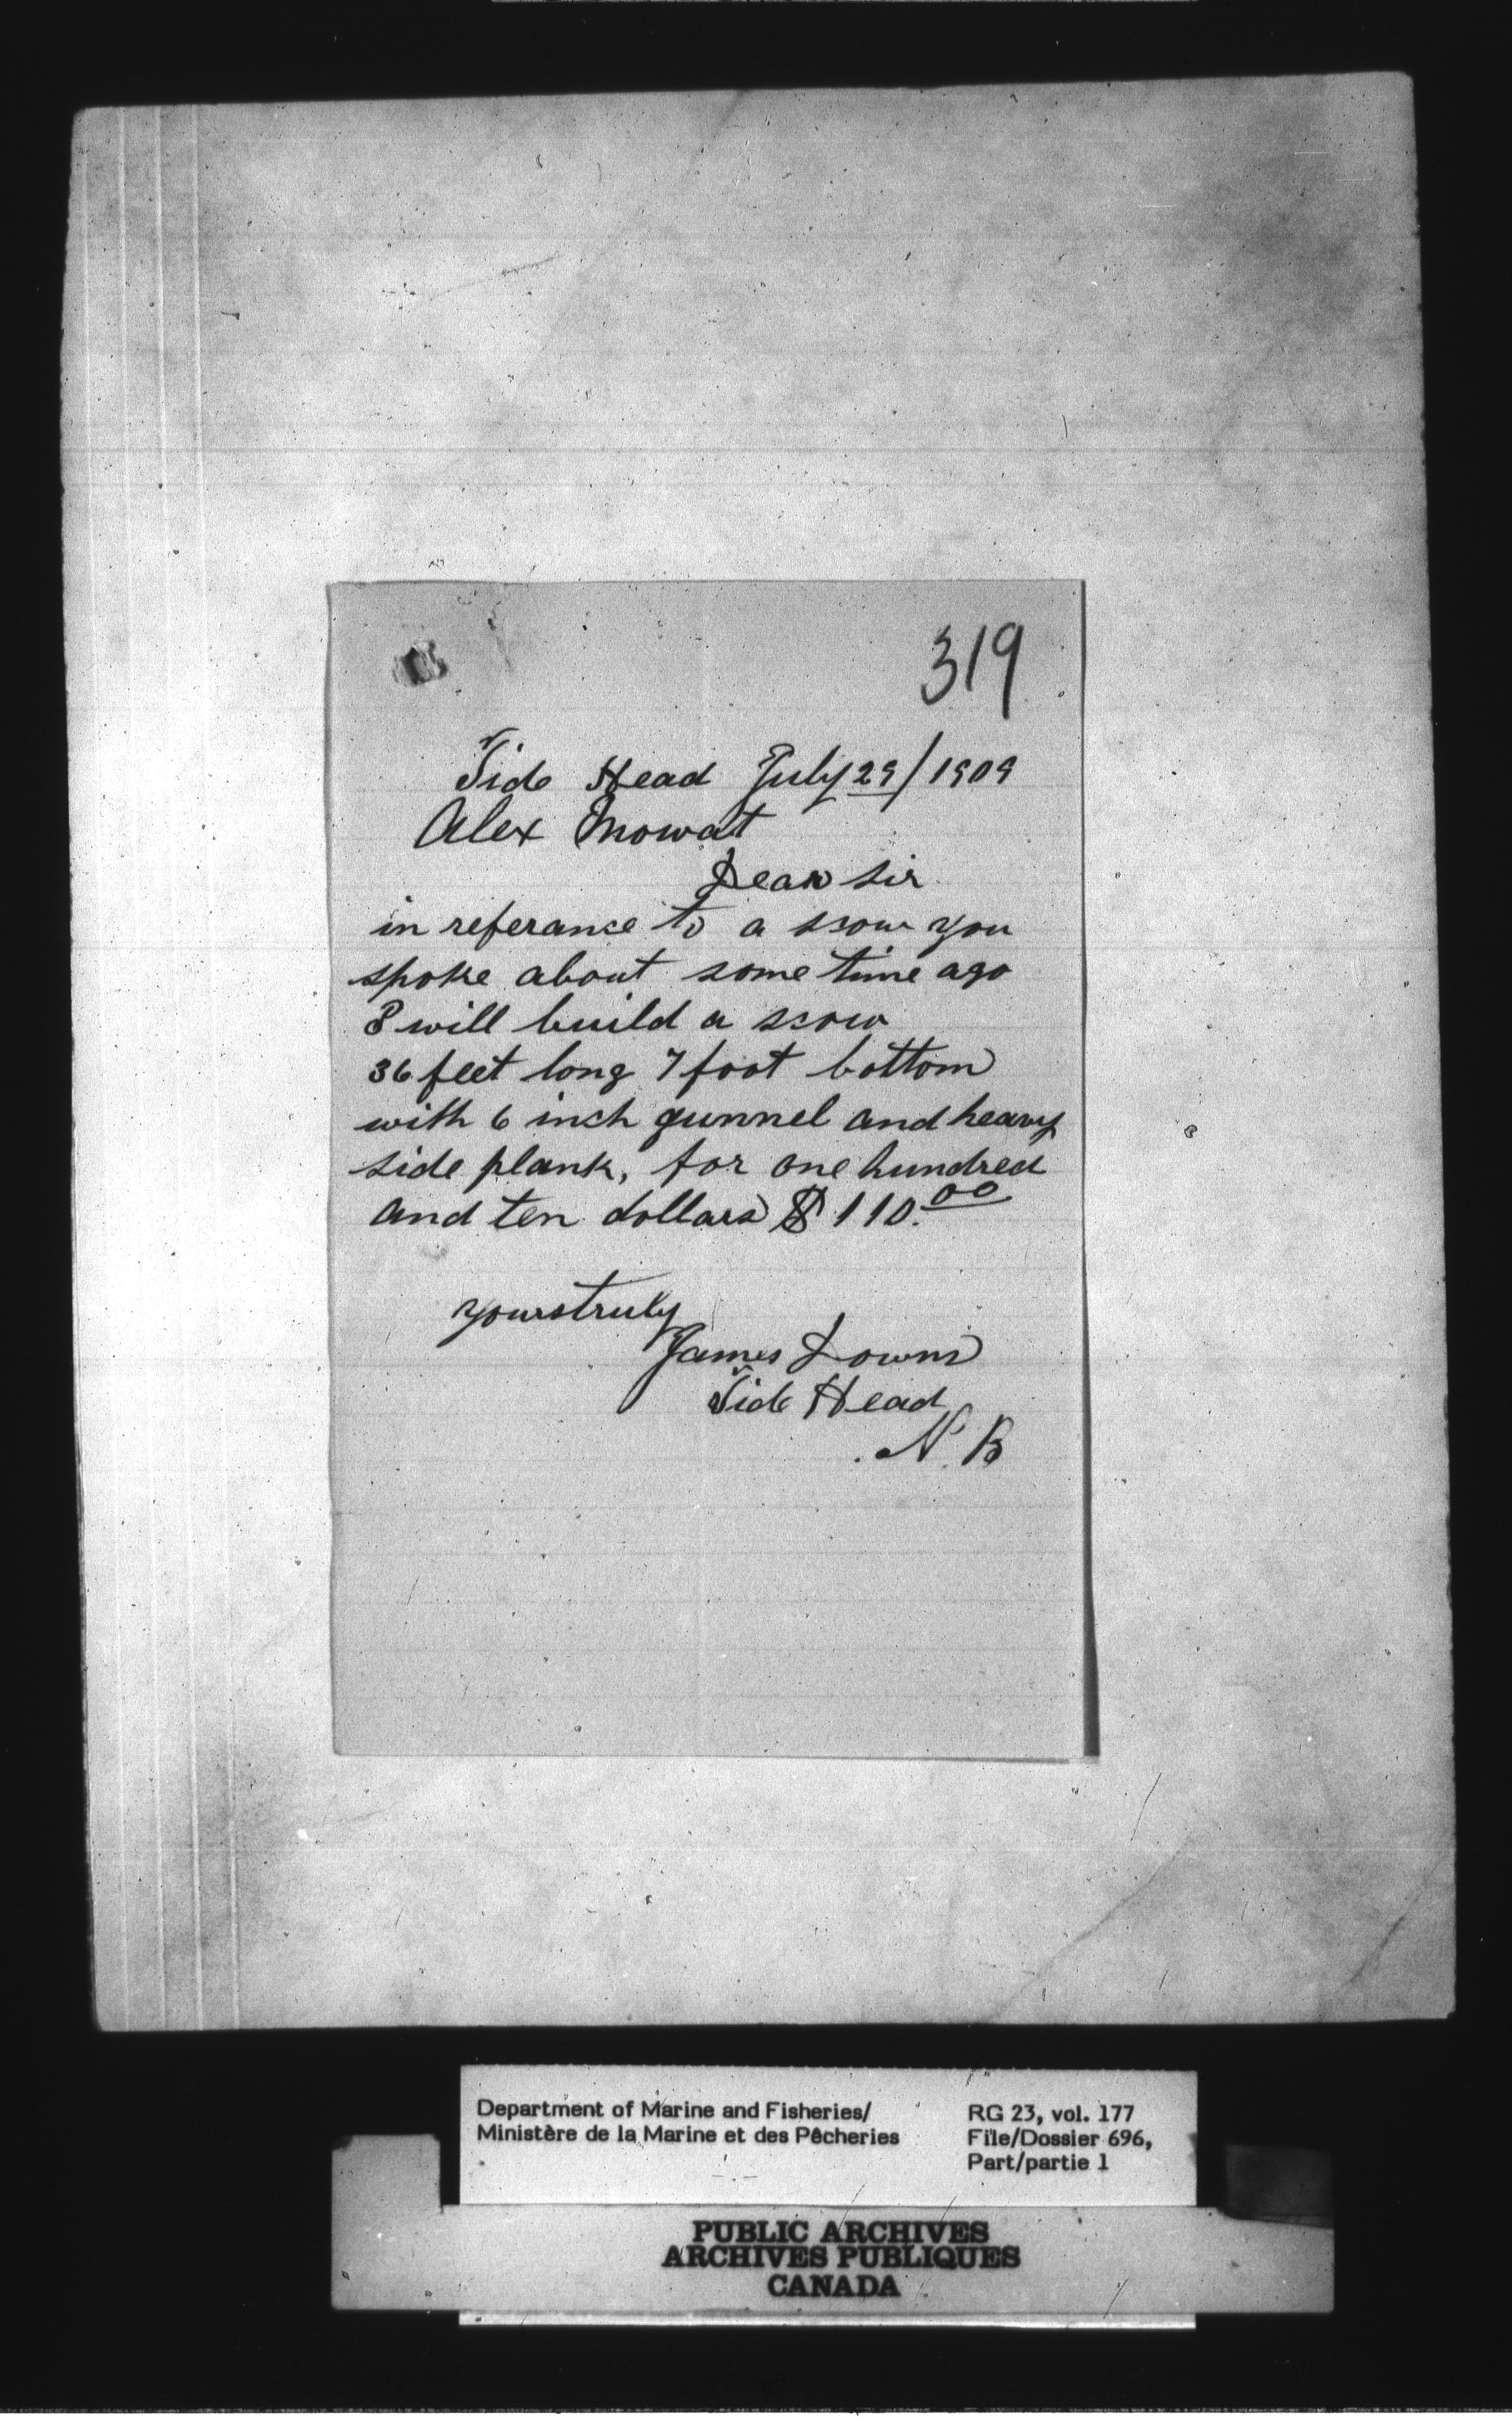 319
Tide Head July 29/1909
Alex Mowat
Dear Sir
in referance to a scow you
spoke about some time ago
I will build a scow
36 feet long 7 foot bottom
with 6 inch gunnel and heavy
side plank, for one hundred
and ten dollars $110.00
yours truly
James
Tide Head
N. B
Department of Marine and Fisheries/
Ministère de la Marine et des Pêcheries
RG 23, vol. 177
File/Dossier 696,
Part/partie 1
PUBLIC ARCHIVES
ARCHIVES PUBLIQUES
CANADA